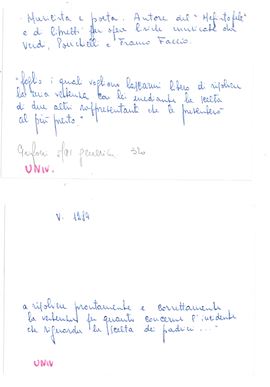 Musicista e poeta. Autore del "Mefistofele"
e di libretti per opere liriche musicate da
Verdi, Ponchielli e Franco Faccio.
"foglio i quali vogliono lasciarmi libero di risolvere
la mia vertenza con lei mediante la scelta
di due altri rappresentanti che le presenterò
al più presto."
UNIV.
V. 1287
a risolvere prontamente e correttamente
la vertenza per quanto concerne l'incidente
che riguarda la scelta dei padrini..."
UNIV